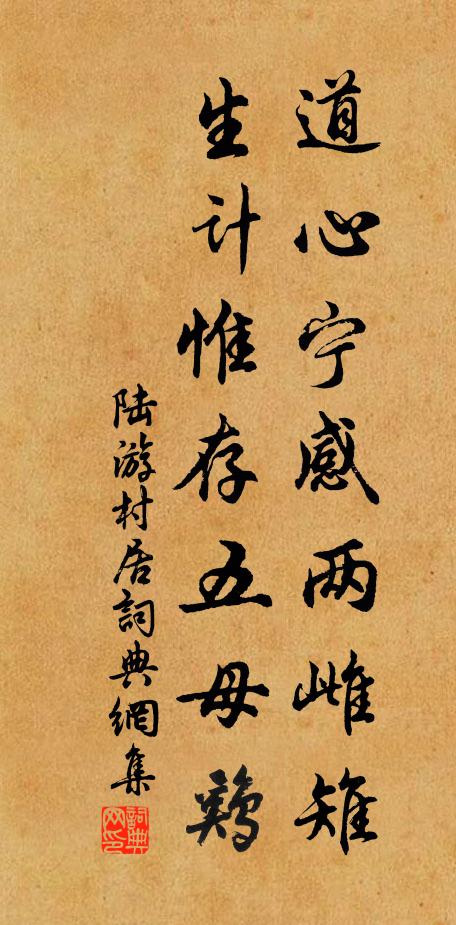 道心宁感两雌雉
生计惟存五母鸡
陆游村居詞典網集
詞典网印